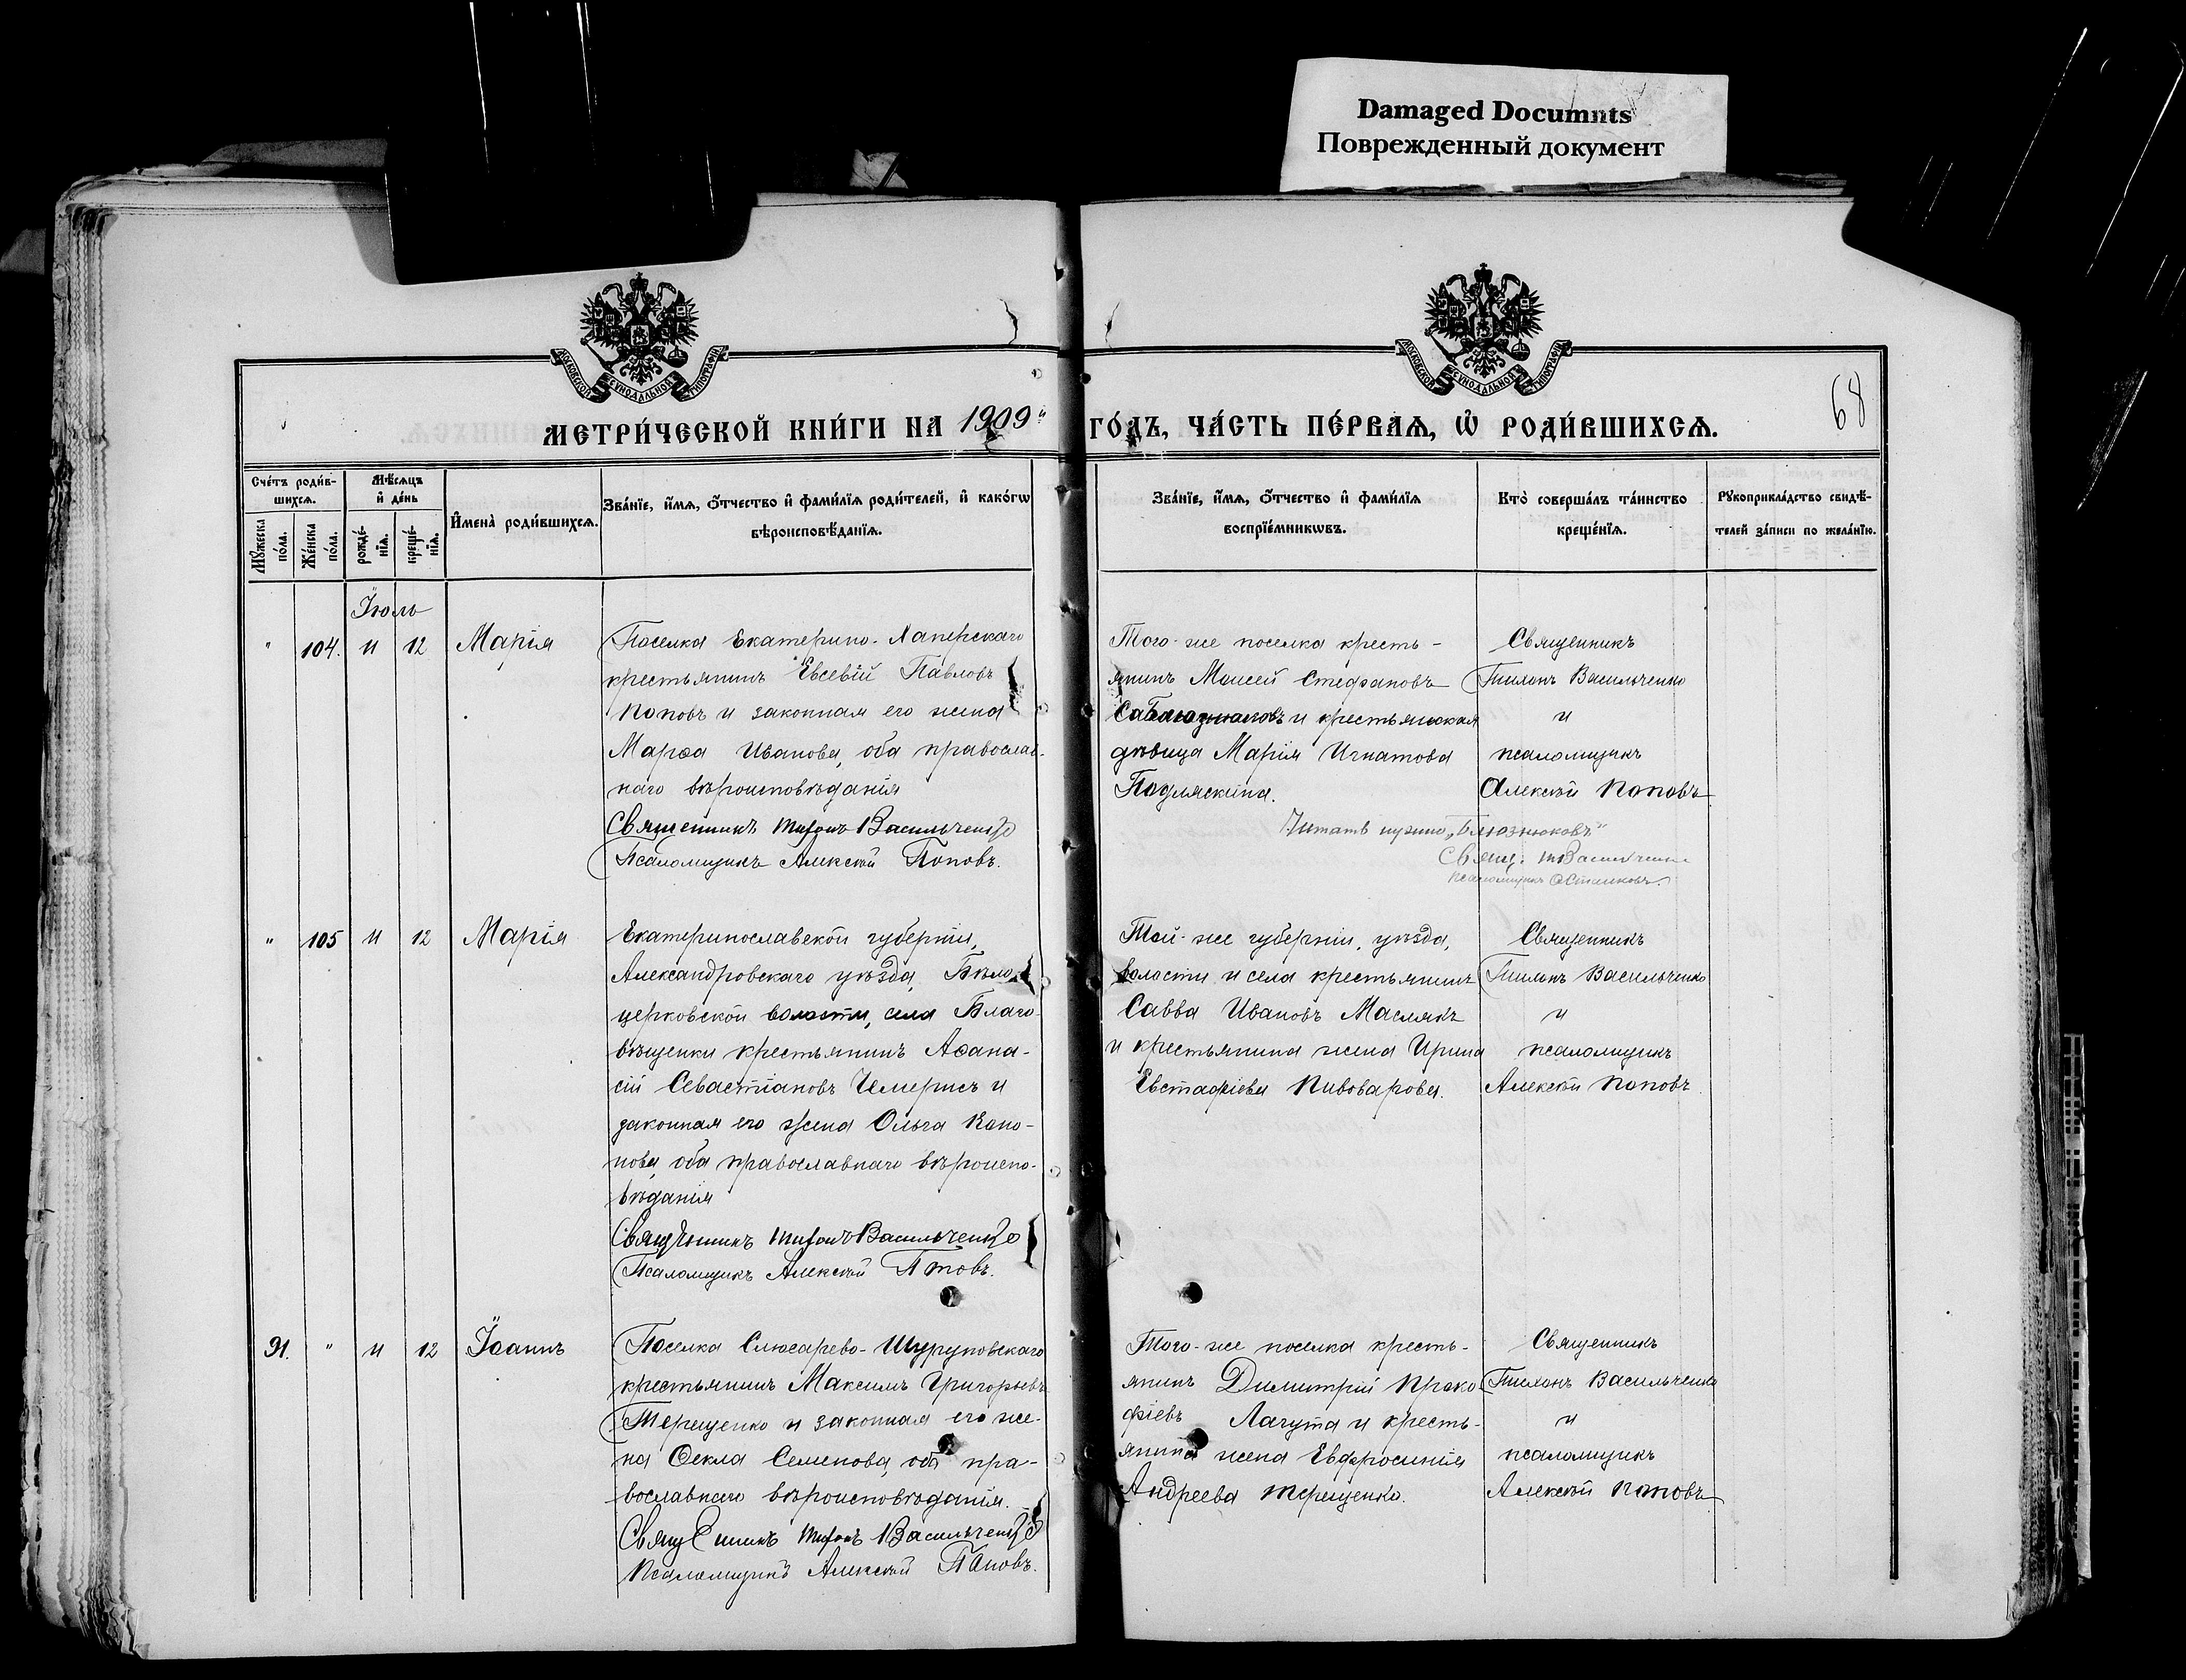 Damaged Documnts
Поврежденный документ
МОСКОВСКОЙ СѴНОДАЛЬНОЙ ТИПОГРАФІИ
МОСКОВСКОЙ СѴНОДАЛЬНОЙ ТИПОГРАФІИ
68
МЕТРИ́ЧЕСКОЙ КНИ́ГИ НА 1909 ГО́ДЪ, ЧА́СТЬ ПЕ́РВАѦ, Ѽ РОДИ́ВШИХСѦ.
Сче́тъ роди́в-
шихсѧ.
Мꙋ́жеска по́ла.
Же́нска по́ла.
Мѣ́сѧцъ и҆ де́нь
рожде́-нїѧ.
креще́-нїѧ.
И҆мена̀ роди́вшихсѧ.
Зва́нїе, и҆́мѧ, ѻ҆́тчество и҆ фами́лїѧ роди́телей, и҆ како́гѡ
вѣроисповѣ́данїѧ.
Зва́нїе, и҆́мѧ, ѻ҆́тчество и҆ фами́лїѧ
воспрїе́мникѡвъ.
Кто̀ соверша́лъ та́инство
креще́нїѧ.
Рꙋкоприкла́дство свидѣ́-
телей за́писи по жела́нїю.
Іюль
" 104. 11 12 Марія
Поселка Екатерино-Хаперскаго
крестьянинъ Евсевій Павловъ
Поповъ и законная его жена
Марѳа Иванова, оба православ-
наго вѣроисповѣданія
Священникъ Тихонъ Васильченко
Псаломщикъ Алексѣй Поповъ.
Того-же поселка кресть-
янинъ Моисей Стефановъ
и крестьянская
дѣвица Марія Игнатова
Подляскина.
Читать нужно „Блюзнюковъ"
Свящ. Т Васильченко
Псаломщикъ
Священникъ
Тихонъ Васильченко
и
псаломщикъ
Алексѣй Поповъ
" 105 11 12 Марія
Екатеринославской губерніи,
Александровскаго уѣзда, Бѣло-
церковской волости, села Благо-
вѣщенки крестьянинъ Аѳана-
сій Севастіановъ Чемерисъ и
законная его жена Ольга Коно-
нова, оба православнаго вѣроиспо-
вѣданія
Священникъ Тихонъ Васильченко
Псаломщикъ Алексѣй Поповъ.
Той-же губерніи, уѣзда,
волости и села крестьянинъ
Савва Ивановъ Маслякъ
и крестьянина жена Ирина
Евстафіева Пивоварова.
Священникъ
Тихонъ Васильченко
и
псаломщикъ
Алексѣй Поповъ
91. " 11 12 Іоаннъ
Поселка Слюсарево-Шуруповскаго
крестьянинъ Максимъ Григорьевъ
Терещенко и законная его же-
на Ѳекла Семенова, оба пра-
вославнаго вѣроисповѣданія.
Священникъ Тихонъ Васильченко
Псаломщикъ Алексѣй Поповъ.
Того-же поселка кресть-
янинъ Димитрій Проко-
фіевъ Лагута и кресть-
янина жена Евфросинія
Андреева Терещенко.
Священникъ
Тихонъ Васильченко
и
псаломщикъ
Алексѣй Поповъ